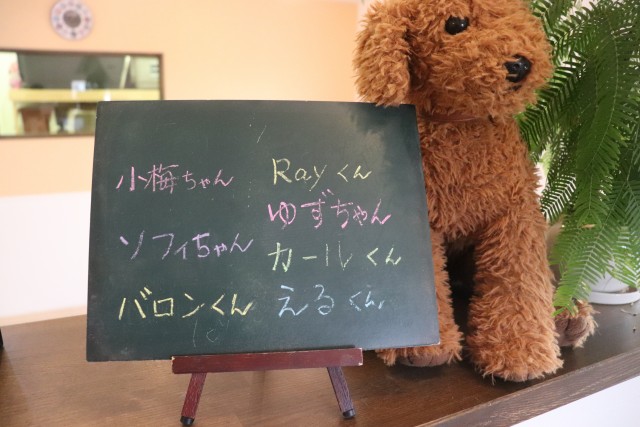 小梅ちゃん
ソフィちゃん
バロンくん
Rayくん
ゆずちゃん
カールくん
えるくん